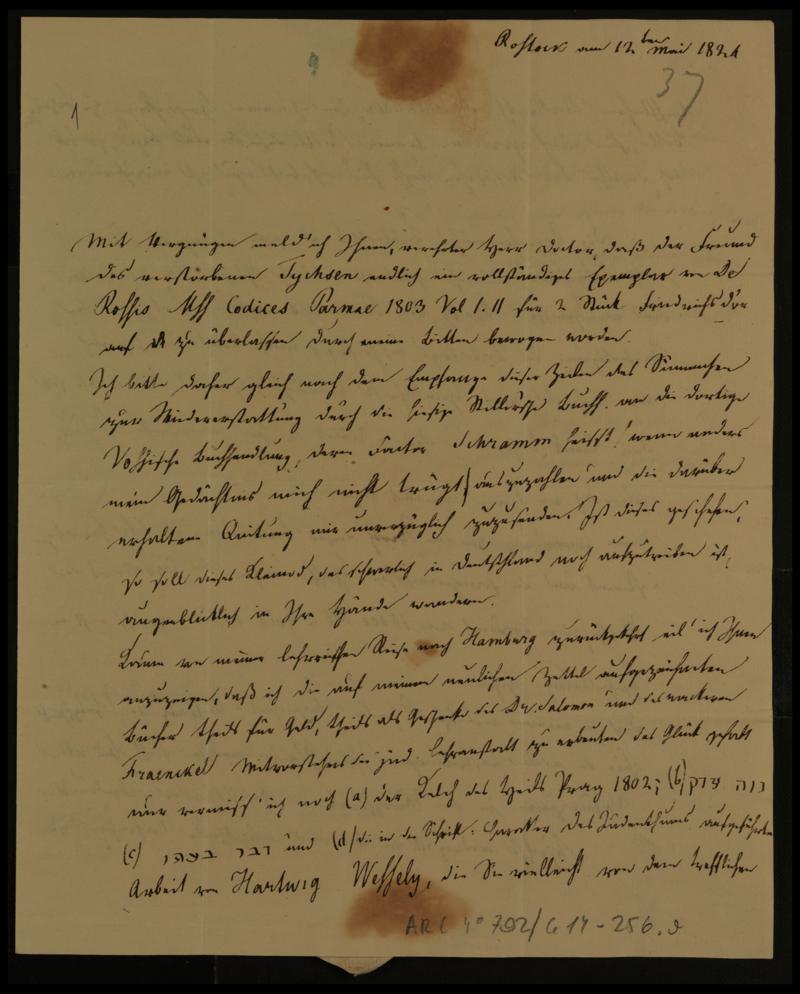 Rostock am 12ten Mai 1824
37
1
Mit Vergnügen meld' ich Ihnen, verehrter Herr Doctor, daß der Freund
des verstorbenen Tychsen endlich ein vollständiges Exemplar von De
Rossis Mss Codices Parmae 1803 Vol I. II für 2 Stück Friedrichsdor
zu überlassen durch meine Bitten bewogen worden.
Ich bitte daher gleich nach dem Empfange dieser Zeilen das Sümmchen
zur Wiedererstattung durch die hiesige Stillersche Buchh. an die dortige
Vossische Buchhandlung, deren Factor Schramm heisst (wenn anders
mein Gedächtnis mich nicht trügt) auszuzahlen und die darüber
erhaltene Quitung mir unverzüglich zuzusenden. Ist dieses geschehen,
so soll dieses Kleinod, das schwerlich in Deutschland noch aufzutreiben ist,
augenblicklich in Ihre Hände wandern.
Kaum von meiner lehrreichen Reise nach Hamburg zurückgekehrt eil' ich Ihnen
anzuzeigen, daß ich die auf meinem neulichen Zettel aufgezeichneten
Bücher theils für Geld, theils als Geschenk des Dr. Salomon und des wackeren
Fraenckel Mitvorstehers der jüd. Lehranstalt zu erbeuten das Glück gehabt
nur vermiss' ich noch (a) der Kelch des Heils Prag 1802; (b) נוה צדק
(c) דבר בעתו und (d) die in der Schrift: Charakter des Judenthums aufgeführte
Arbeit von Hartwig Wessely, die Sie vielleicht von dem trefflichen
ARC 4° 792/G 14-256.